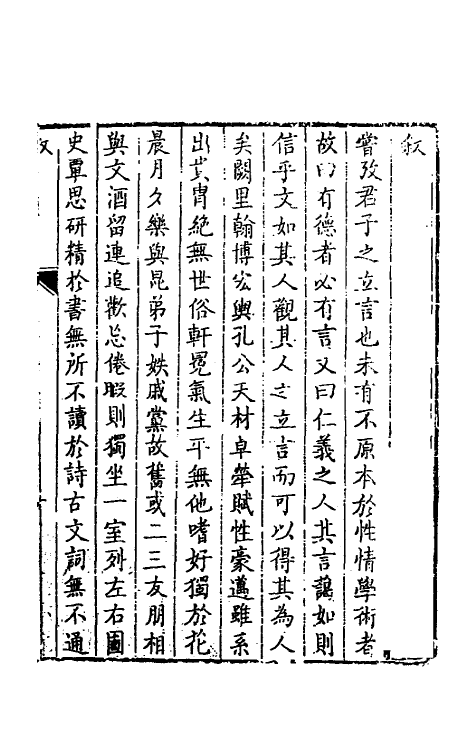 叙
嘗攷君子之立言也未有不原本於性情學術者
故曰有德者必有言又曰仁義之人其言藹如則
信乎文如其人觀其人之立言而可以得其為人
矣闕里翰博宏輿孔公天材卓犖賦性豪邁雖系
出貴胄絶無世俗軒冕氣生平無他嗜好獨於花
晨月夕樂與昆弟子姪戚黨故舊或二三友朋相
與文酒留連追歡忘倦暇則獨坐一室列左右圖
史覃思研精於書無所不讀於詩古文詞無不通
叙